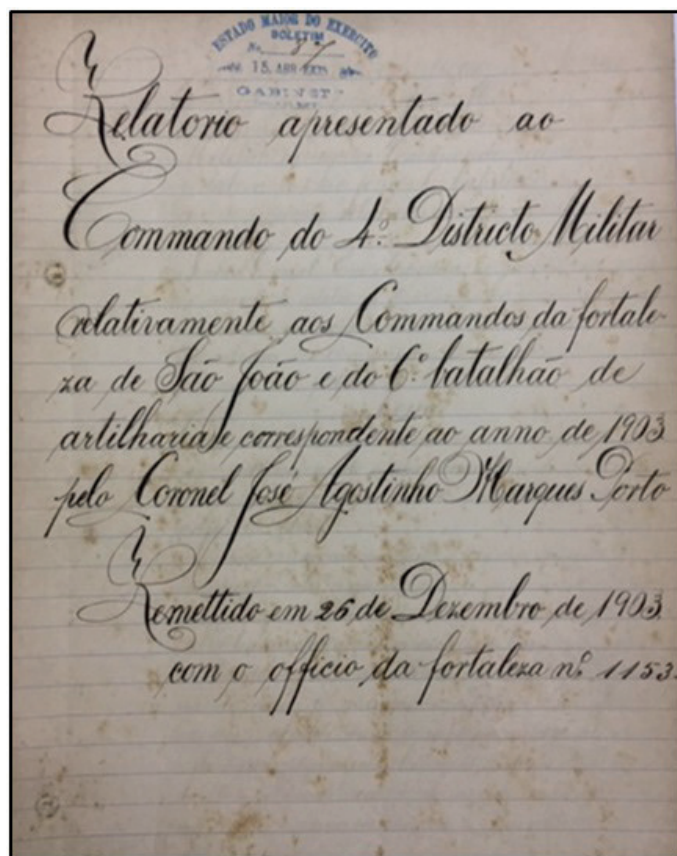 ESTADO MAIOR DO EXERCITO
BOLETIM
No. 87
15 ABR
GABINETE
Relatorio apresentado ao
Commando do 4º Districto Militar
relativamente aos Commandos da fortale-
za de São João e do 6º batalhão de
artilharia e correspondente ao anno de 1903
pelo Coronel José Agostinho Marques Porto
Remettido em 26 de Dezembro de 1903
com o officio da fortaleza nº 1153.